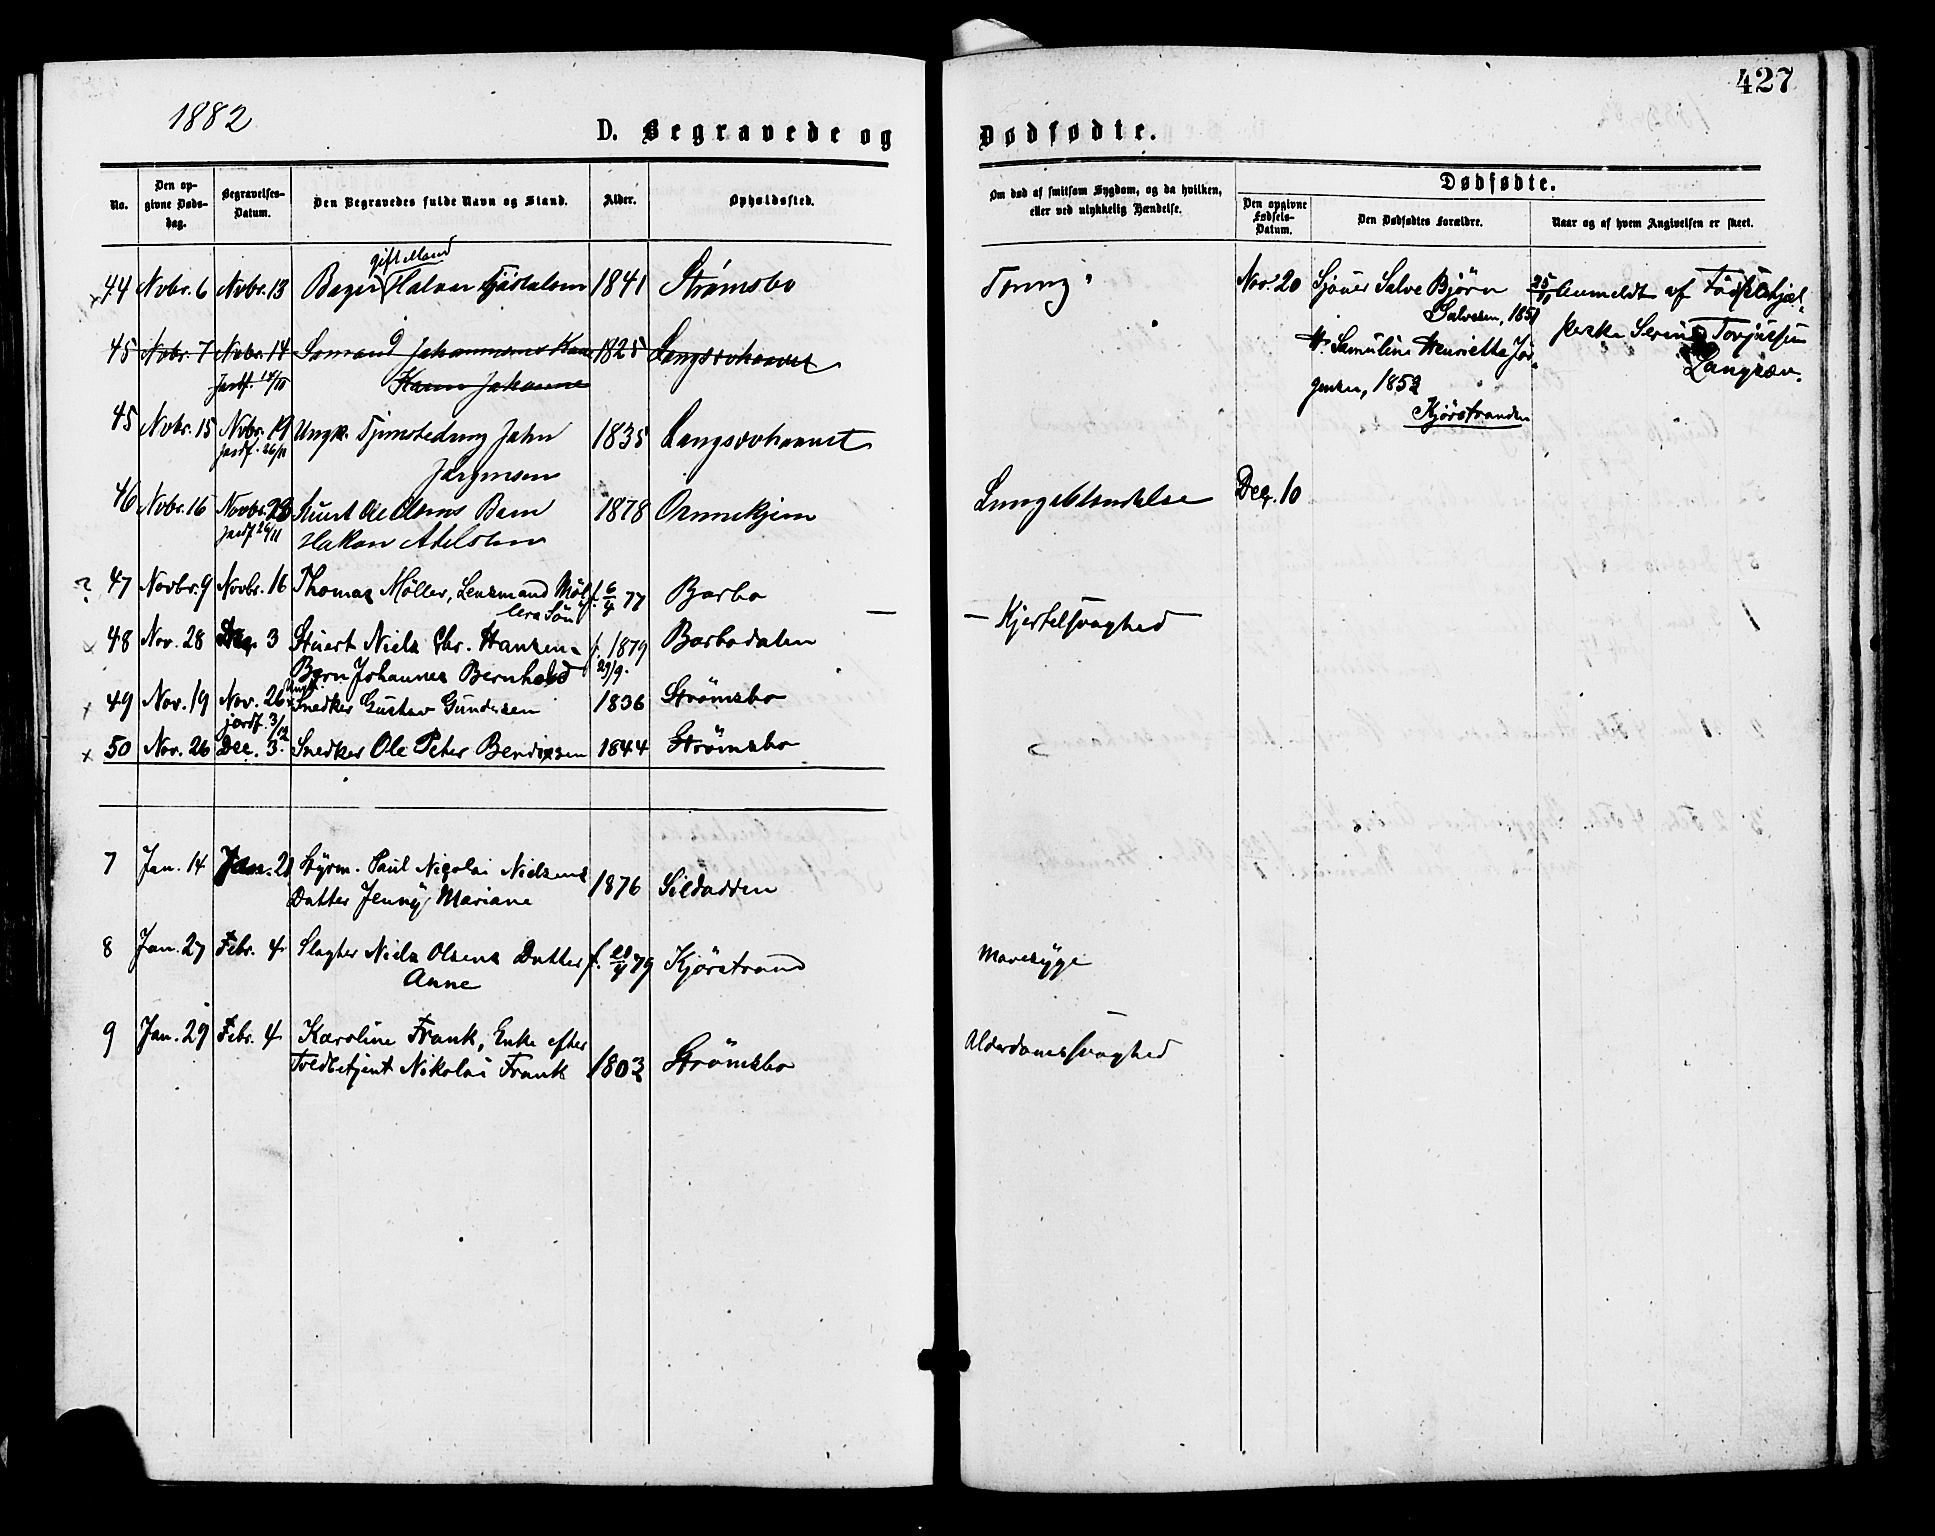 427
1882
D. Begravede og Dødfødte.
No.
Den opgivne Døds-dag.
Begravelses-Datum.
Den Begravedes fulde Navn og Stand.
Alder.
Opholdssted.
Om død af smitsom Sygdom, og da hvilken, eller ved ulykkelig Hændelse.
Dødfødte.
Den opgivne Fødsels-Datum.
Den Dødfødtes Forældre.
Naar og af hvem Angivelsen er skeet.
gift Mand
44 Novbr. 6 Novbr. 13 Bager Halvor 1841 Strømsbo
Nov. 20 Sjøner Salve Bjørn 25/11 Anmeldt af
Salvesen, 1851
45 Novbr. 7 Novbr. 14 Somand Johannesens Kone 1825
Jordf. 14/11 Karen Johanne
H. Samuline Henriette Jør-
gensen, 1852
Kjørstranden
perske Serine Torjusen
Langsæv.
45 Novbr. 15 Novbr. 19 Ungk. John 1835
Jordf. 26/11 Jørgensen
46 Novbr. 16 Novbr. 23 Stuert Ole Olsens Barn 1878
Jordf 26/11 Hakon Adelsten
Lungebetændelse Dec. 10
? 47 Novbr. 9 Novbr. 16 Thomas Möller, Lensmand Möl- f. 6/4 77 Barbo
lers Sön
— Kjertelsvaghed —
x 48 Nov. 28 Dec. 3 Stuert Niels Chr. Hansens f. 1879 Barbodalen
Barn Johannes Bernhard 29/9.
Ungk.
x 49 Nov. 19 Nov. 26 Snedker Gustav Gundersen 1836 Strømsbo
jordf. 3/12
x 50 Nov. 26 Dec. 3. Snedker Ole Peter Bendixsen 1844 Strømsbo
7 Jan. 14 Jan. 21 Styrm. Paul Nicolai Nielsens
Datter Jenny Mariane 1876 Sildodden
8 Jan. 27 Febr. 4 Slagter Niels Olsens Datter 79 Kjørstrand
Anne
Mavesyge
9 Jan. 29 Febr. 4 Karoline Frank, Enke efter
Toldbetjent Nikolai Frank 1803 Strömsbo
Alderdomssvaghed